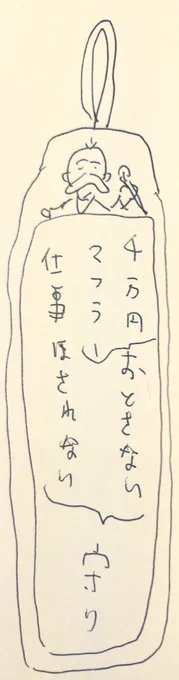 4万円おとさない
マフラー
仕事ほされない
守り